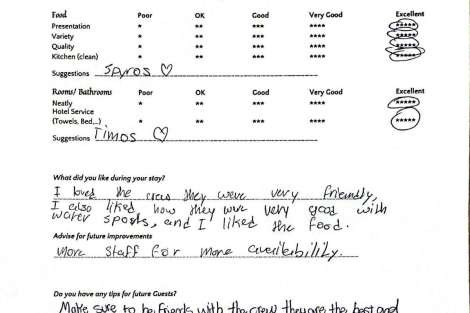 Food Poor OK Good Very Good Excellent
Presentation * ** *** **** *****
Variety * ** *** **** *****
Quality * ** *** **** *****
Kitchen (clean) * ** *** **** *****
Suggestions Spyros ♡
Rooms/ Bathrooms Poor OK Good Very Good Excellent
Neatly * ** *** **** *****
Hotel Service
(Towels, Bed,..) * ** *** **** *****
Suggestions Timos ♡
What did you like during your stay?
I loved the crew they were very friendly,
I also liked how they were very good with
water sports, and I liked the food.
Advise for future improvements
more staff for more availability.
Do you have any tips for future Guests?
Make sure to be friends with the crew they are the best and